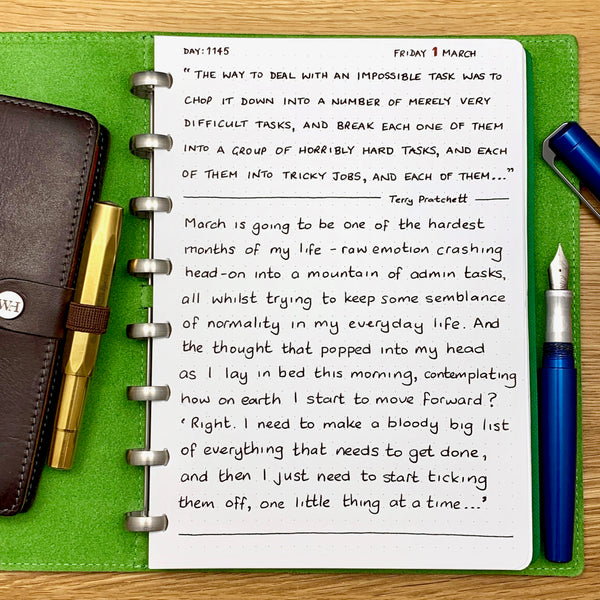 DAY: 1145 FRIDAY 1 MARCH
“ THE WAY TO DEAL WITH AN IMPOSSIBLE TASK WAS TO
CHOP IT DOWN INTO A NUMBER OF MERELY VERY
DIFFICULT TASKS, AND BREAK EACH ONE OF THEM
INTO A GROUP OF HORRIBLY HARD TASKS, AND EACH
OF THEM INTO TRICKY JOBS, AND EACH OF THEM...”
Terry Pratchett
March is going to be one of the hardest
months of my life - raw emotion crashing
head-on into a mountain of admin tasks,
all whilst trying to keep some semblance
of normality in my everyday life. And
the thought that popped into my head
as I lay in bed this morning, contemplating
how on earth I start to move forward?
‘ Right. I need to make a bloody big list
of everything that needs to get done,
and then I just need to start ticking
them off, one little thing at a time...’